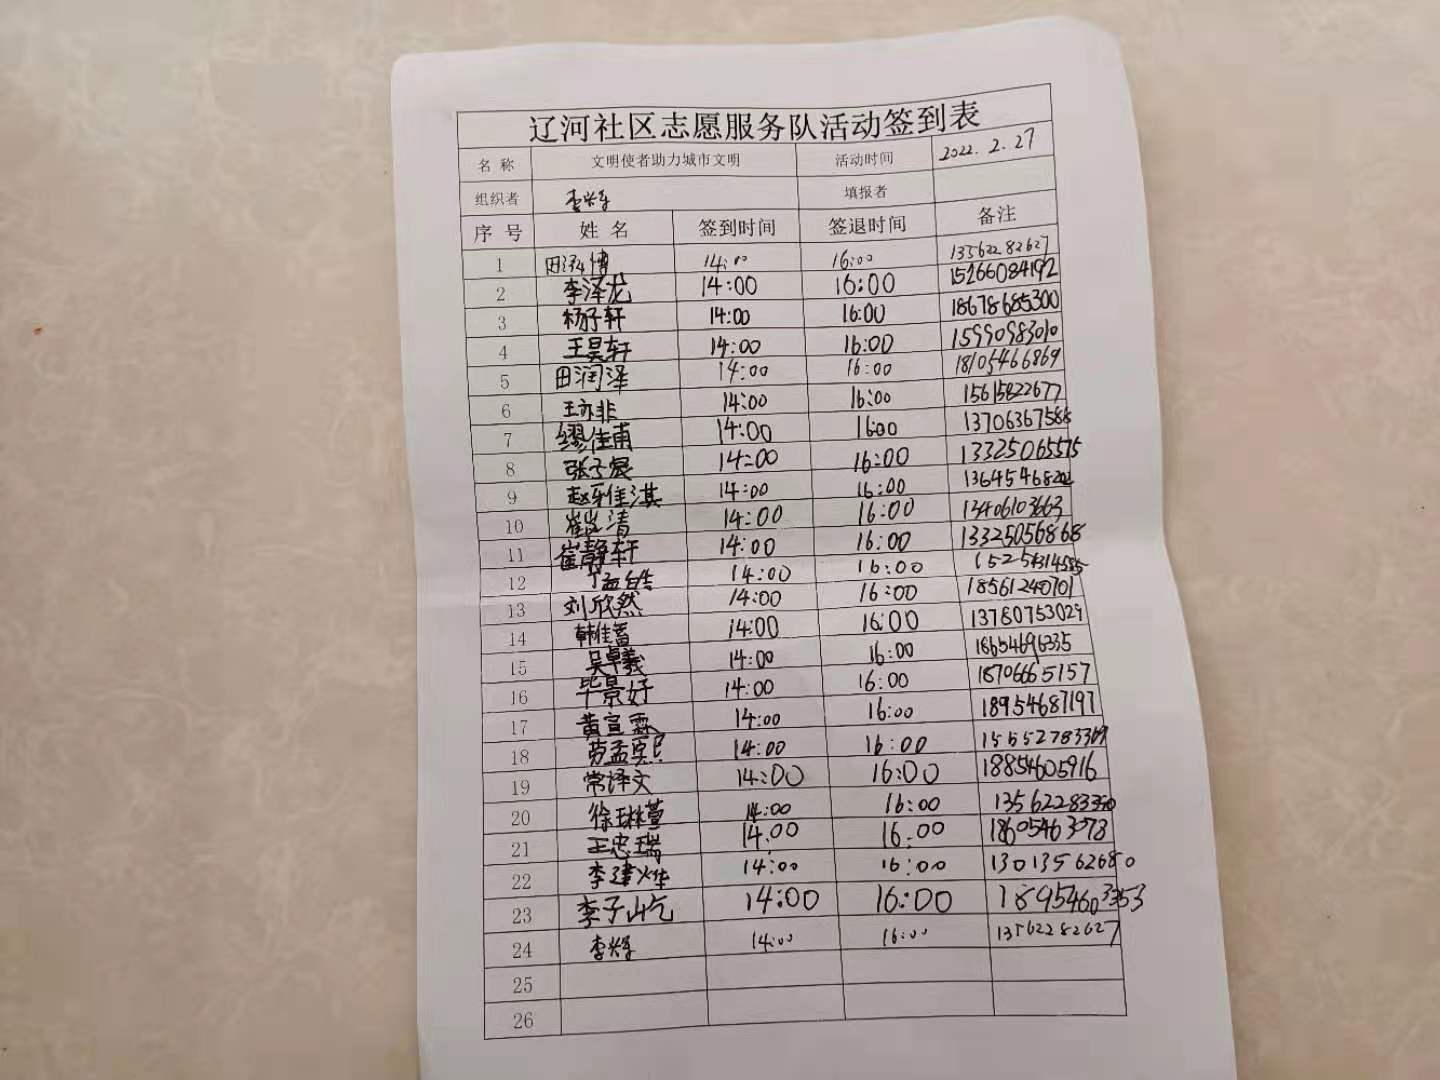 辽河社区志愿服务队活动签到表
名 称 文明使者助力城市文明 活动时间 2022.2.27
组织者 填报者
序 号 姓 名 签到时间 签退时间 备注
1 14:00 16:00 13562282627
2 李泽龙 14:00 16:00 15266084192
3 杨子轩 14:00 16:00 18678685300
4 王昊轩 14:00 16:00 15990983010
5 田润泽 14:00 16:00 18105466869
6 王亦非 14:00 16:00 15615822677
7 缪佳甫 14:00 16:00 13706367588
8 张子宸 14:00 16:00 13325065575
9 赵雅淇 14:00 16:00
10 14:00 16:00 13406103663
11 崔静轩 14:00 16:00 13325056868
12 孟皓 14:00 16:00
13 刘欣然 14:00 16:00 18561240701
14 14:00 16:00 13780753029
15 吴卓羲 14:00 16:00
16 毕景好 14:00 16:00 18706665157
17 黄宣霖 14:00 16:00 18954687197
18 14:00 16:00 15552783369
19 常泽文 14:00 16:00 18854605916
20 徐琳萱 14:00 16:00 13562283350
21 王忠瑞 14:00 16:00
22 李建烨 14:00 16:00 13013562680
23 李子屹 14:00 16:00 18954603353
24 14:00 16:00 13562282627
25
26